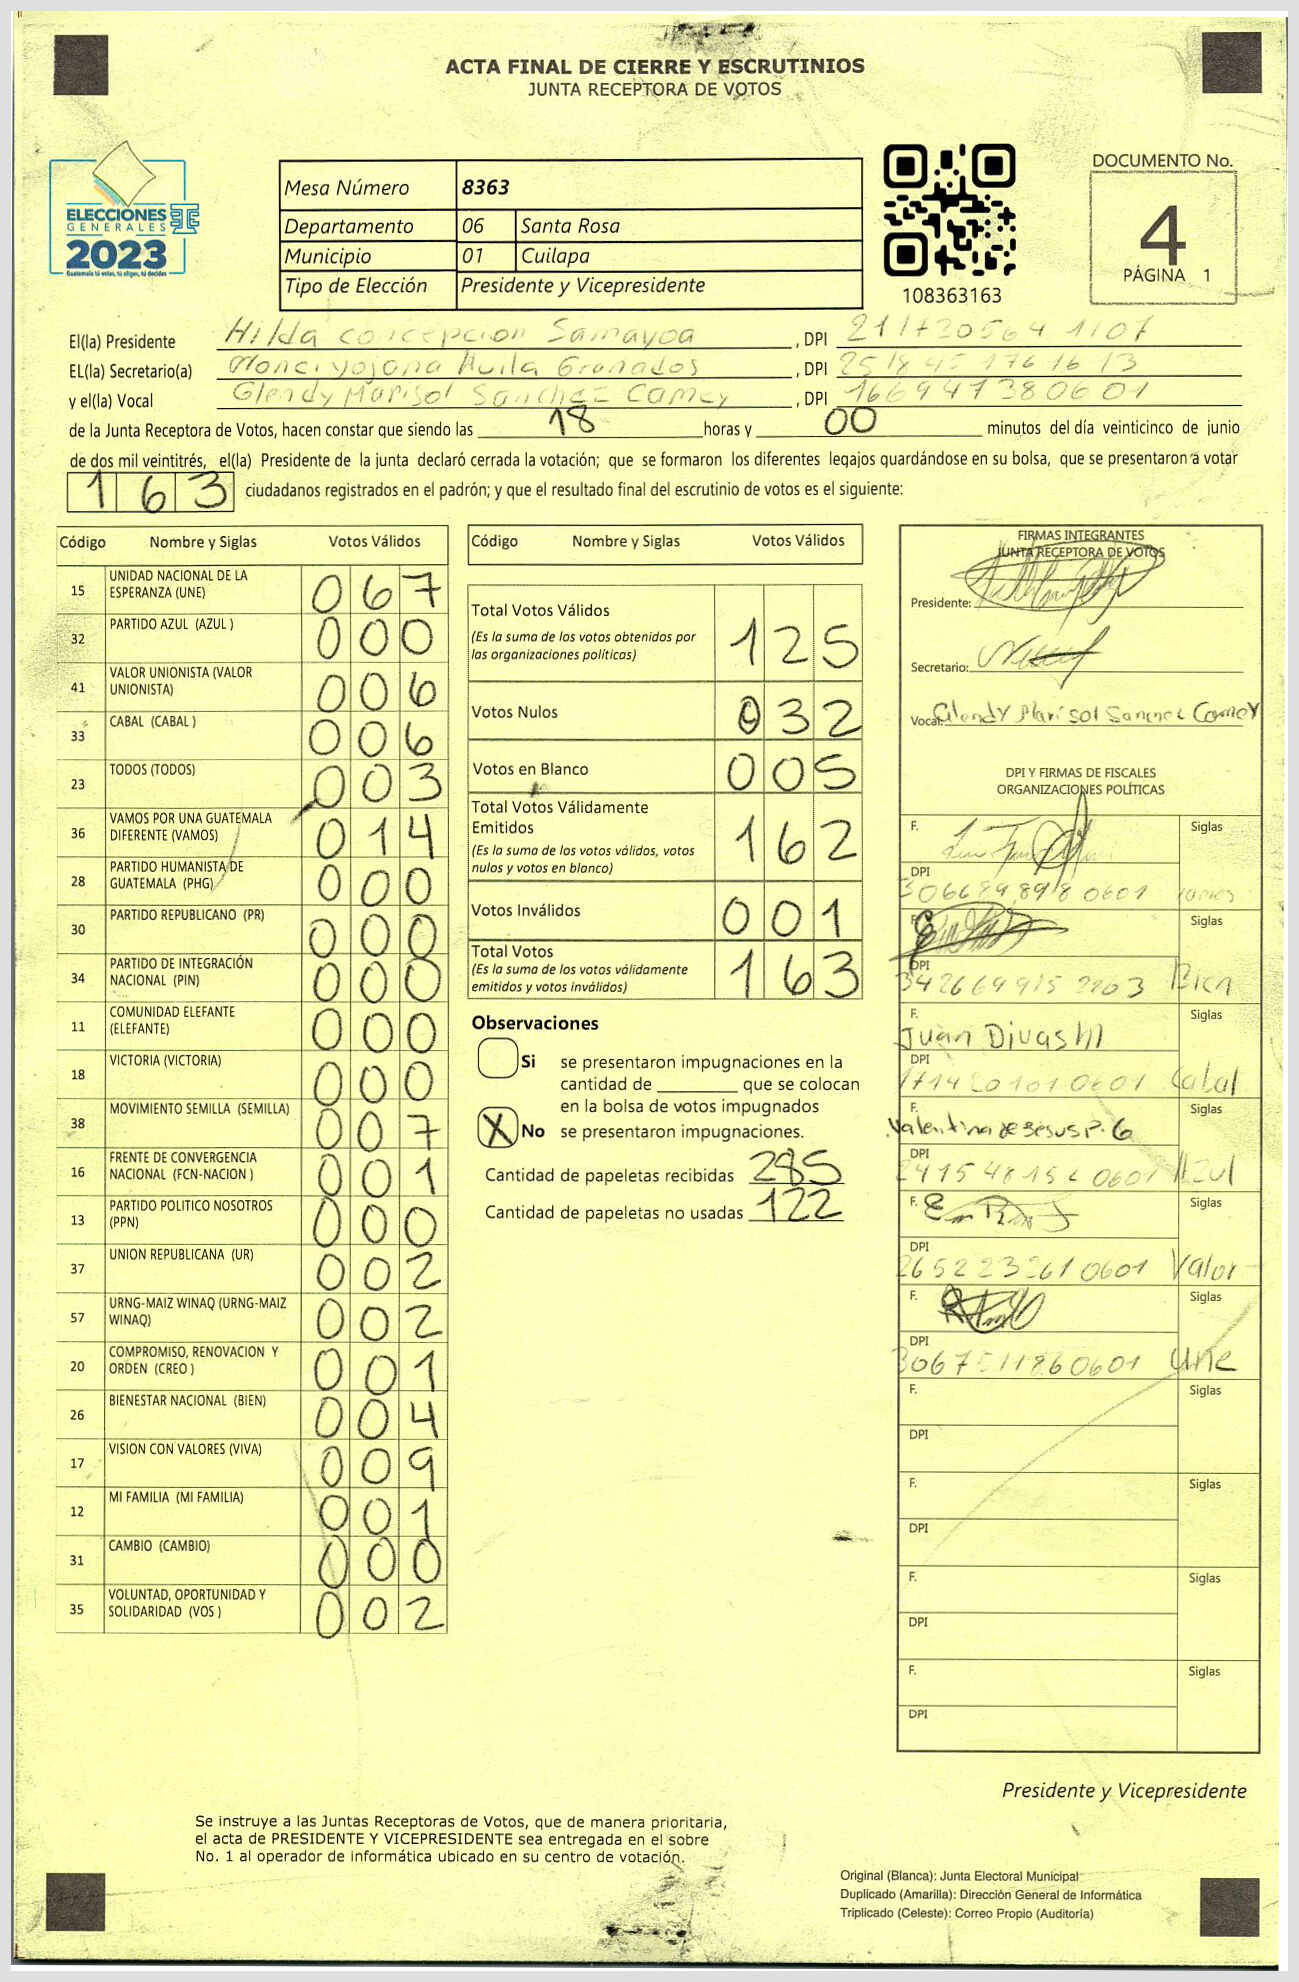 ACTA FINAL DE CIERRE Y ESCRUTINIOS
JUNTA RECEPTORA DE VOTOS
ELECCIONES
GENERALES
2023
Guatemala tú votas, tú eliges, tú decides
Mesa Número 8363
Departamento 06 Santa Rosa
Municipio 01 Cuilapa
Tipo de Elección Presidente y Vicepresidente
108363163
DOCUMENTO No.
4
PÁGINA 1
El(la) Presidente Hilda concepcion Samayoa , DPI
EL(la) Secretario(a) Avila Granados , DPI
y el(la) Vocal Glendy Marisol Sanchez Camey , DPI 1669473880601
de la Junta Receptora de Votos, hacen constar que siendo las 18 horas y 00 minutos del día veinticinco de junio
de dos mil veintitrés, el(la) Presidente de la junta declaró cerrada la votación; que se formaron los diferentes legajos guardándose en su bolsa, que se presentaron a votar
163 ciudadanos registrados en el padrón; y que el resultado final del escrutinio de votos es el siguiente:
Código Nombre y Siglas Votos Válidos
15 UNIDAD NACIONAL DE LA ESPERANZA (UNE) 067
32 PARTIDO AZUL (AZUL ) 000
41 VALOR UNIONISTA (VALOR UNIONISTA) 006
33 CABAL (CABAL ) 006
23 TODOS (TODOS) 003
36 VAMOS POR UNA GUATEMALA DIFERENTE (VAMOS) 014
28 PARTIDO HUMANISTA DE GUATEMALA (PHG) 000
30 PARTIDO REPUBLICANO (PR) 000
34 PARTIDO DE INTEGRACIÓN NACIONAL (PIN) 000
11 COMUNIDAD ELEFANTE (ELEFANTE) 000
18 VICTORIA (VICTORIA) 000
38 MOVIMIENTO SEMILLA (SEMILLA) 007
16 FRENTE DE CONVERGENCIA NACIONAL (FCN-NACION ) 001
13 PARTIDO POLITICO NOSOTROS (PPN) 000
37 UNION REPUBLICANA (UR) 002
57 URNG-MAIZ WINAQ (URNG-MAIZ WINAQ) 002
20 COMPROMISO, RENOVACION Y ORDEN (CREO ) 001
26 BIENESTAR NACIONAL (BIEN) 004
17 VISION CON VALORES (VIVA) 009
12 MI FAMILIA (MI FAMILIA) 001
31 CAMBIO (CAMBIO) 000
35 VOLUNTAD, OPORTUNIDAD Y SOLIDARIDAD (VOS ) 002
Código Nombre y Siglas Votos Válidos
Total Votos Válidos 125
(Es la suma de los votos obtenidos por
las organizaciones políticas)
Votos Nulos 032
Votos en Blanco 005
Total Votos Válidamente
Emitidos 162
(Es la suma de los votos válidos, votos
nulos y votos en blanco)
Votos Inválidos 001
Total Votos 163
(Es la suma de los votos válidamente
emitidos y votos inválidos)
Observaciones
Si se presentaron impugnaciones en la
cantidad de ________ que se colocan
en la bolsa de votos impugnados
X No se presentaron impugnaciones.
Cantidad de papeletas recibidas 285
Cantidad de papeletas no usadas 122
FIRMAS INTEGRANTES
JUNTA RECEPTORA DE VOTOS
Presidente:
Secretario:
Vocal: Glendy Marisol Sanchez Camey
DPI Y FIRMAS DE FISCALES
ORGANIZACIONES POLÍTICAS
F. Siglas
DPI
F. Siglas
DPI Bien
F. Juan Divas M Siglas
DPI Cabal
F. Valentina de Jesus P. G Siglas
DPI Azul
F. Siglas
DPI 2652232610601 Valor
F. Siglas
DPI 3067511860601 Une
F. Siglas
DPI
F. Siglas
DPI
F. Siglas
DPI
F. Siglas
DPI
Presidente y Vicepresidente
Se instruye a las Juntas Receptoras de Votos, que de manera prioritaria,
el acta de PRESIDENTE Y VICEPRESIDENTE sea entregada en el sobre
No. 1 al operador de informática ubicado en su centro de votación.
Original (Blanca): Junta Electoral Municipal
Duplicado (Amarilla): Dirección General de Informática
Triplicado (Celeste): Correo Propio (Auditoría)